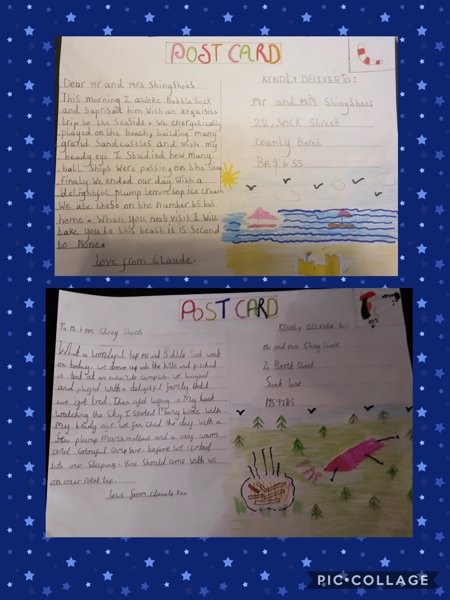 POST CARD
Dear Mr and mrs ShinyShoes
This morning I awoke Bobble Sock
and Suprised him with an exquisite
trip to the Seaside. We energetically
played on the beach, building many
grand Sandcastles and with my
beady eye I Studied how many
ball Ships were passing on the Sea
Finaly we ended our day with a
delightful plump Lemon Sop ice cream
We ate these on the number 65 bus
home. When you next visit I will
take you to this beach it is Second
to None.
Love from Claude.
KINDLY DELIVER TO:
Mr. and Mrs. ShinyShoes
22, Sock Street
County Beret
BR9 6 SS
POST CARD
To Mr & mrs Shiny Shoes
What a wonderful trip me and Bobble Sock went
on today. We drove up into the hills and pitched
a tent at an campsite. We laughed
and played with a delightful family until
we got tired. Then after lying in My back
watching the Sky I spotted Many birds with
My beady eye. We finished the day with a
few plump Marshmellows and a very warm
and colourful campfire. before we climbed
into our Sleeping. You Should come with us
on our next trip.
love from claude xxx
KINDLY DELIVER TO:
Mr and mrs Shiny Shoes
2 Beret Street
Sock Lane
MS9 2BS
PIC•COLLAGE